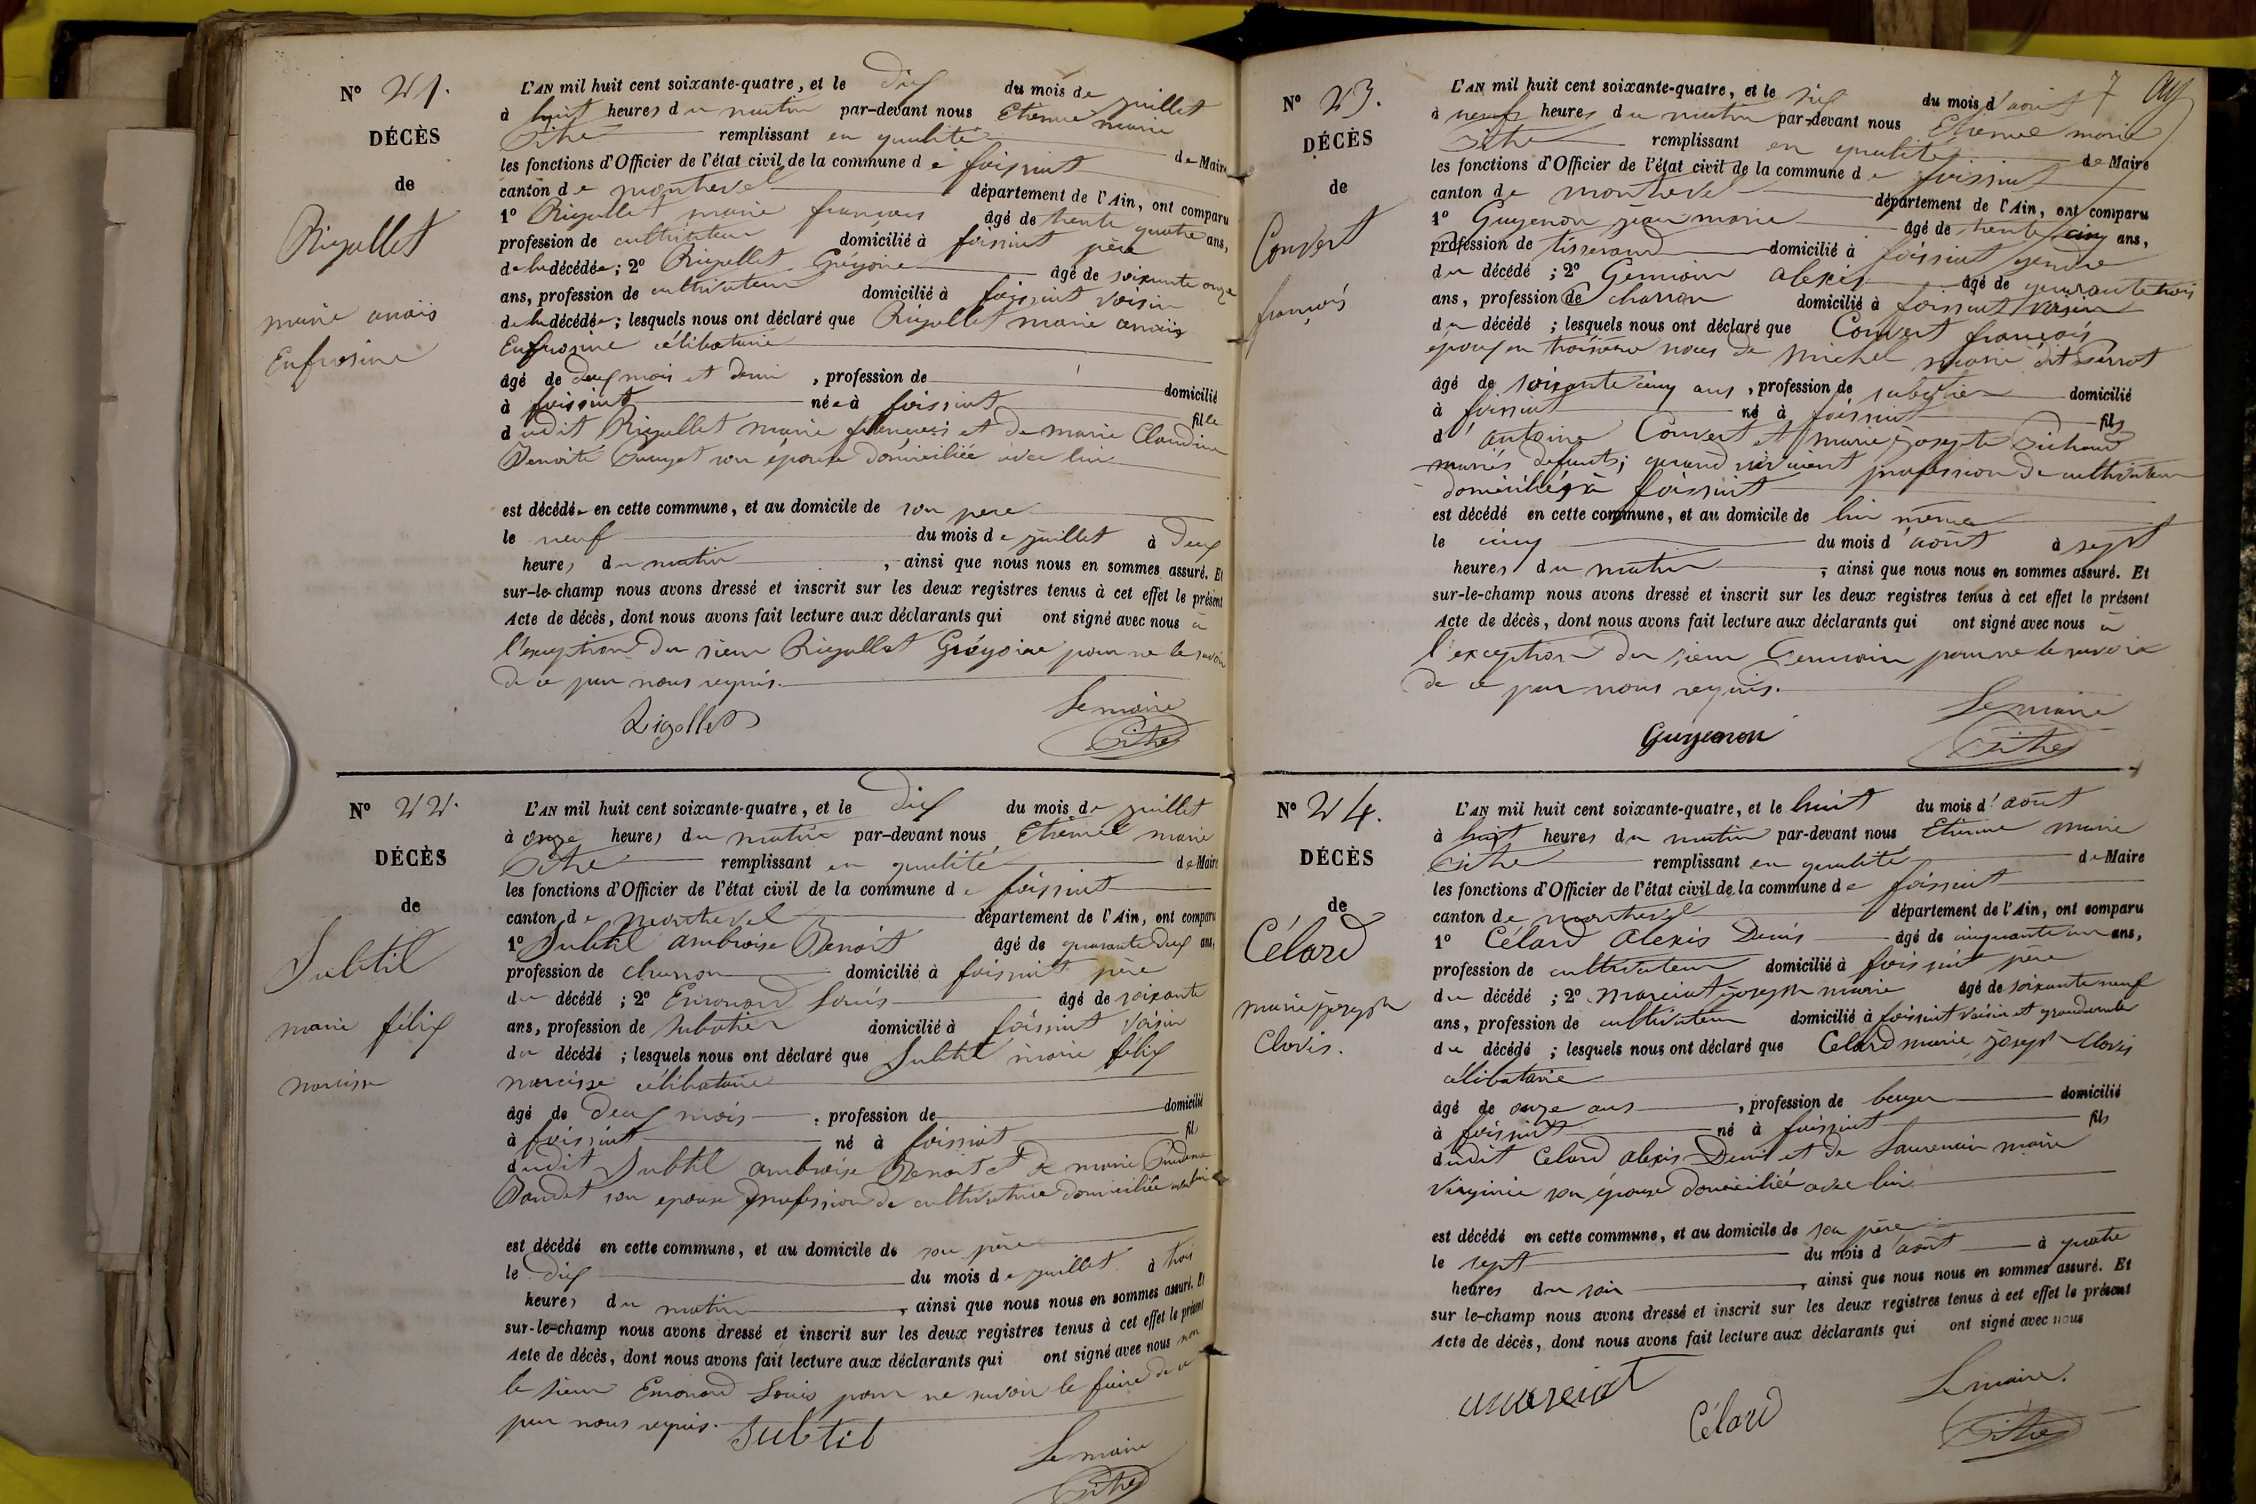 N° 21.
DÉCÈS
de
Rigollet
marie anaïs
Eufrosine
L'AN mil huit cent soixante-quatre, et le dix du mois de juillet
à huit heures du matin par-devant nous Etienne marie
remplissant en qualité de Maire
les fonctions d'Officier de l'état civil de la commune de foissiat
canton de montrevel département de l'Ain, ont comparu
1° Rigollet marie françois âgé de trente quatre ans,
profession de cultivateur domicilié à foissiat père
de la décédée ; 2° Rigollet Grégoire âgé de soixante onze
ans, profession de cultivateur domicilié à foissiat voisin
de la décédée ; lesquels nous ont déclaré que Rigollet marie anaïs
Eufrosine célibataire
âgé de deux mois et demi , profession de domicilié
à foissiat née à foissiat fille
dudit Rigollet marie françois et de marie Claudine
Benoite son épouse domiciliée avec lui
est décédée en cette commune, et au domicile de son père
le neuf du mois de juillet à deux
heures du matin , ainsi que nous nous en sommes assuré. Et
sur-le-champ nous avons dressé et inscrit sur les deux registres tenus à cet effet le présent
Acte de décès, dont nous avons fait lecture aux déclarants qui ont signé avec nous a
l'exception du sieur Rigollet Grégoire pour ne le savoir
de ce par nous requis.
Le maire
Rigollet
N° 22.
DÉCÈS
de
Subtil
marie félix
narcisse
L'AN mil huit cent soixante-quatre, et le dix du mois de juillet
à onze heures du matin par-devant nous Etienne marie
remplissant en qualité de Maire
les fonctions d'Officier de l'état civil de la commune de foissiat
canton de montrevel département de l'Ain, ont comparu
1° Subtil ambroise Benoit âgé de quarante deux ans,
profession de charron domicilié à foissiat père
du décédé ; 2° Emonard Louis âgé de soixante
ans, profession de sabotier domicilié à foissiat voisin
du décédé ; lesquels nous ont déclaré que Subtil marie félix
narcisse célibataire
âgé de deux mois , profession de domicilié
à foissiat né à foissiat fils
dudit Subtil ambroise Benoit et de marie
son épouse profession de cultivatrice domiciliée avec lui
est décédé en cette commune, et au domicile de son père
le dix du mois de juillet à trois
heures du matin , ainsi que nous nous en sommes assuré. Et
sur-le-champ nous avons dressé et inscrit sur les deux registres tenus à cet effet le présent
Acte de décès, dont nous avons fait lecture aux déclarants qui ont signé avec nous non
le sieur Emonard Louis pour ne savoir le faire de ce
par nous requis.
Subtil
Le maire
7
N° 23.
DÉCÈS
de
Convert
françois
L'AN mil huit cent soixante-quatre, et le six du mois d'août
à neuf heures du matin par-devant nous Etienne marie
remplissant en qualité de Maire
les fonctions d'Officier de l'état civil de la commune de foissiat
canton de montrevel département de l'Ain, ont comparu
1° Guyenon jean marie âgé de trente cinq ans,
profession de tisserand domicilié à foissiat gendre
du décédé ; 2° Germain alexis âgé de quarante trois
ans, profession de charron domicilié à foissiat voisin
du décédé ; lesquels nous ont déclaré que Convert françois
époux en troisième noces de Michel marie dit Perrot
âgé de soixante cinq ans , profession de sabotier domicilié
à foissiat né à foissiat fils
d'antoine Convert et marie josepte
mariés défunts ; quand vivaient profession de cultivateur
domiciliés à foissiat
est décédé en cette commune, et au domicile de lui même
le cinq du mois d'août à sept
heures du matin , ainsi que nous nous en sommes assuré. Et
sur-le-champ nous avons dressé et inscrit sur les deux registres tenus à cet effet le présent
Acte de décès, dont nous avons fait lecture aux déclarants qui ont signé avec nous a
l'exception du sieur Germain pour ne le savoir
de ce par nous requis.
Le maire
Guyenon
N° 24.
DÉCÈS
de
Célard
marie joseph
Clovis.
L'AN mil huit cent soixante-quatre, et le huit du mois d'août
à huit heures du matin par-devant nous Etienne marie
remplissant en qualité de Maire
les fonctions d'Officier de l'état civil de la commune de foissiat
canton de montrevel département de l'Ain, ont comparu
1° Célard Alexis Denis âgé de cinquante un ans,
profession de cultivateur domicilié à foissiat père
du décédé ; 2° marciat joseph marie âgé de soixante neuf
ans, profession de cultivateur domicilié à foissiat voisin et grand oncle
du décédé ; lesquels nous ont déclaré que Celard marie joseph Clovis
célibataire
âgé de onze ans , profession de berger domicilié
à foissiat né à foissiat fils
dudit Celard alexis Denis et de Laurencin marie
Virginie son épouse domiciliée avec lui
est décédé en cette commune, et au domicile de son père
le sept du mois d'août à quatre
heures du soir , ainsi que nous nous en sommes assuré. Et
sur le-champ nous avons dressé et inscrit sur les deux registres tenus à cet effet le présent
Acte de décès, dont nous avons fait lecture aux déclarants qui ont signé avec nous
Le maire.
marciat
Célard